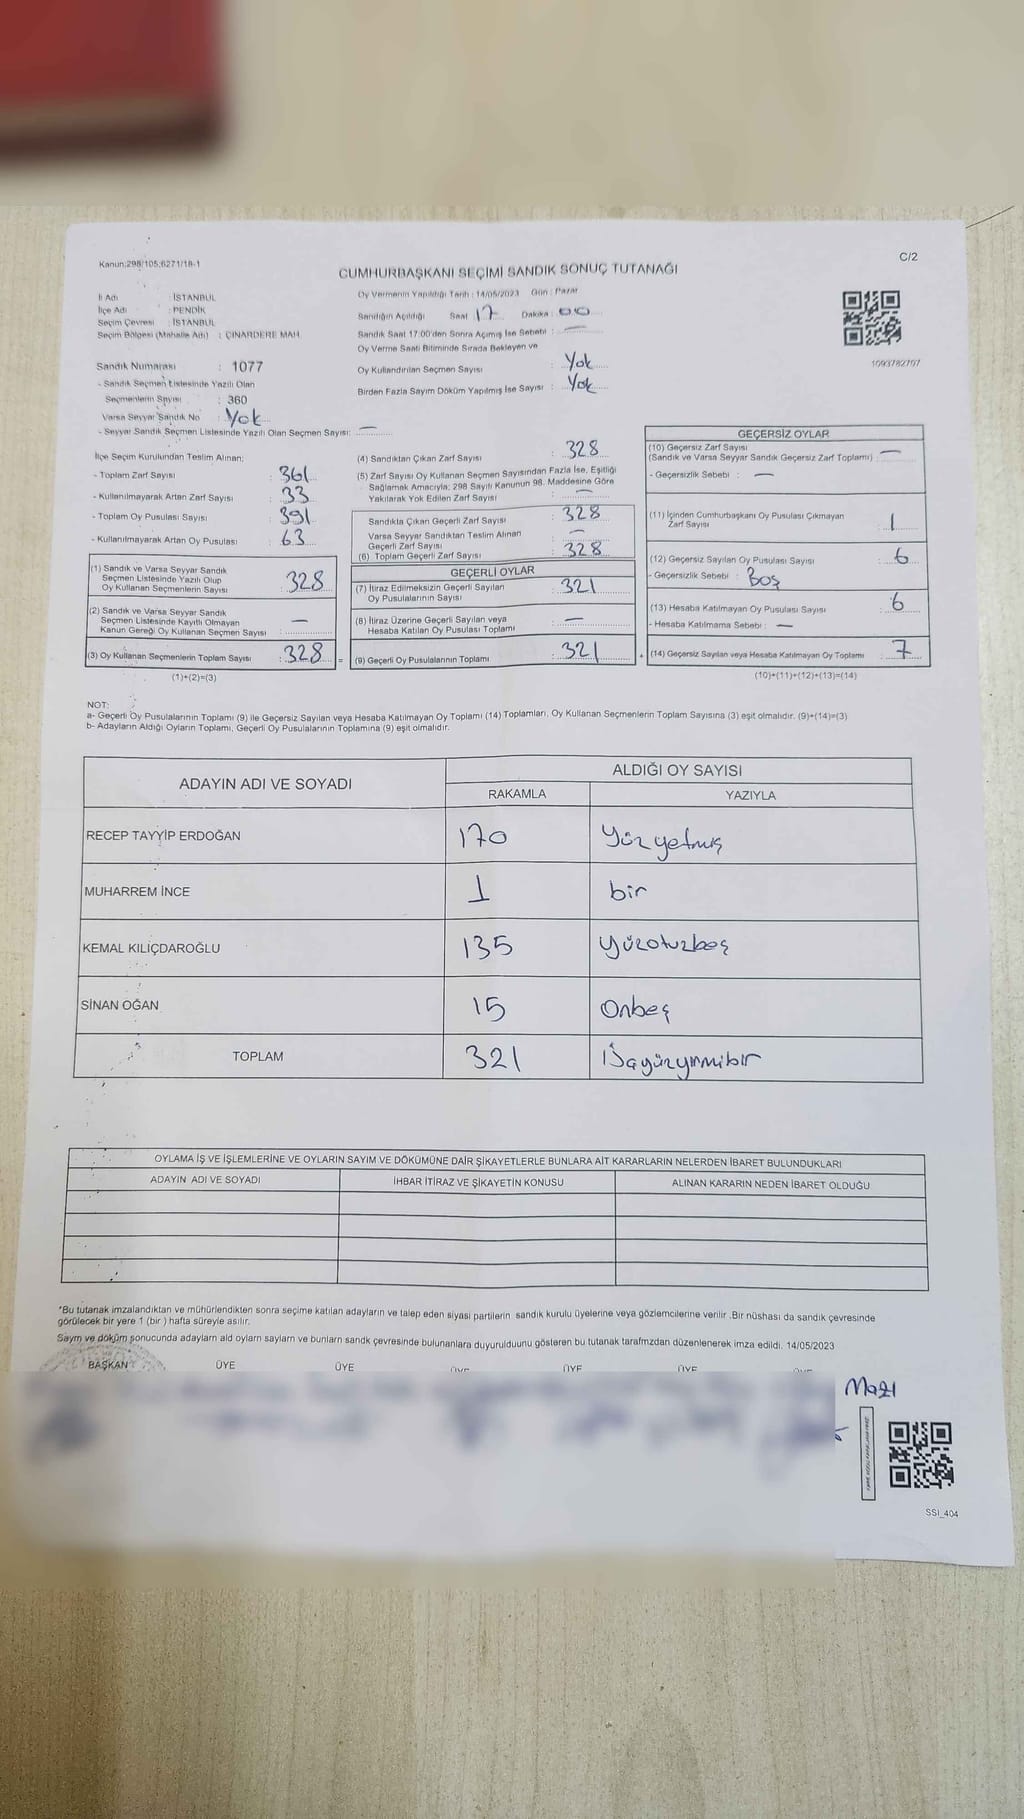 Kanun:298/105;6271/18-1
C/2
CUMHURBAŞKANI SEÇİMİ SANDIK SONUÇ TUTANAĞI
İl Adı : İSTANBUL
İlçe Adı : PENDİK
Seçim Çevresi : İSTANBUL
Seçim Bölgesi (Mahalle Adı) : ÇINARDERE MAH.
Sandık Numarası : 1077
- Sandık Seçmen Listesinde Yazılı Olan
Seçmenlerin Sayısı : 360
Varsa Seyyar Sandık No : Yok
- Seyyar Sandık Seçmen Listesinde Yazılı Olan Seçmen Sayısı: —
Oy Vermenin Yapıldığı Tarih : 14/05/2023 Gün : Pazar
Sandığın Açıldığı Saat : 17 Dakika : 00
Sandık Saat 17:00'den Sonra Açılmış İse Sebebi : —
Oy Verme Saati Bitiminde Sırada Bekleyen ve
Oy Kullandırılan Seçmen Sayısı : Yok
Birden Fazla Sayım Döküm Yapılmış İse Sayısı : Yok
1093782707
İlçe Seçim Kurulundan Teslim Alınan:
- Toplam Zarf Sayısı : 361
- Kullanılmayarak Artan Zarf Sayısı : 33
- Toplam Oy Pusulası Sayısı : 391
- Kullanılmayarak Artan Oy Pusulası : 63
(1) Sandık ve Varsa Seyyar Sandık
Seçmen Listesinde Yazılı Olup
Oy Kullanan Seçmenlerin Sayısı : 328
(2) Sandık ve Varsa Seyyar Sandık
Seçmen Listesinde Kayıtlı Olmayan
Kanun Gereği Oy Kullanan Seçmen Sayısı : —
(3) Oy Kullanan Seçmenlerin Toplam Sayısı : 328 =
(1)+(2)=(3)
(4) Sandıktan Çıkan Zarf Sayısı : 328
(5) Zarf Sayısı Oy Kullanan Seçmen Sayısından Fazla İse, Eşitliği
Sağlamak Amacıyla; 298 Sayılı Kanunun 98. Maddesine Göre
Yakılarak Yok Edilen Zarf Sayısı : —
Sandıkta Çıkan Geçerli Zarf Sayısı : 328
Varsa Seyyar Sandıktan Teslim Alınan
Geçerli Zarf Sayısı : —
(6) Toplam Geçerli Zarf Sayısı : 328
GEÇERLİ OYLAR
(7) İtiraz Edilmeksizin Geçerli Sayılan
Oy Pusulalarının Sayısı : 321
(8) İtiraz Üzerine Geçerli Sayılan veya
Hesaba Katılan Oy Pusulası Toplamı : —
(9) Geçerli Oy Pusulalarının Toplamı : 321 +
GEÇERSİZ OYLAR
(10) Geçersiz Zarf Sayısı
(Sandık ve Varsa Seyyar Sandık Geçersiz Zarf Toplamı) : —
- Geçersizlik Sebebi : —
(11) İçinden Cumhurbaşkanı Oy Pusulası Çıkmayan
Zarf Sayısı : 1
(12) Geçersiz Sayılan Oy Pusulası Sayısı : 6
- Geçersizlik Sebebi : Boş
(13) Hesaba Katılmayan Oy Pusulası Sayısı : 6
- Hesaba Katılmama Sebebi : —
(14) Geçersiz Sayılan veya Hesaba Katılmayan Oy Toplamı : 7
(10)+(11)+(12)+(13)=(14)
NOT:
a- Geçerli Oy Pusulalarının Toplamı (9) ile Geçersiz Sayılan veya Hesaba Katılmayan Oy Toplamı (14) Toplamları, Oy Kullanan Seçmenlerin Toplam Sayısına (3) eşit olmalıdır. (9)+(14)=(3)
b- Adayların Aldığı Oyların Toplamı, Geçerli Oy Pusulalarının Toplamına (9) eşit olmalıdır.
ADAYIN ADI VE SOYADI
ALDIĞI OY SAYISI
RAKAMLA YAZIYLA
RECEP TAYYİP ERDOĞAN 170 Yüzyetmiş
MUHARREM İNCE 1 bir
KEMAL KILIÇDAROĞLU 135 Yüzotuzbeş
SİNAN OĞAN 15 Onbeş
TOPLAM 321 Üçyüzyirmibir
OYLAMA İŞ VE İŞLEMLERİNE VE OYLARIN SAYIM VE DÖKÜMÜNE DAİR ŞİKAYETLERLE BUNLARA AİT KARARLARIN NELERDEN İBARET BULUNDUKLARI
ADAYIN ADI VE SOYADI İHBAR İTİRAZ VE ŞİKAYETİN KONUSU ALINAN KARARIN NEDEN İBARET OLDUĞU
*Bu tutanak imzalandıktan ve mühürlendikten sonra seçime katılan adayların ve talep eden siyasi partilerin sandık kurulu üyelerine veya gözlemcilerine verilir .Bir nüshası da sandık çevresinde
görülecek bir yere 1 (bir ) hafta süreyle asılır.
Saym ve döküm sonucunda adaylarn ald oylarn saylarn ve bunlarn sandk çevresinde bulunanlara duyurulduunu gösteren bu tutanak tarafmzdan düzenlenerek imza edildi. 14/05/2023
BAŞKAN ÜYE ÜYE ÜYE ÜYE ÜYE
SSI_404